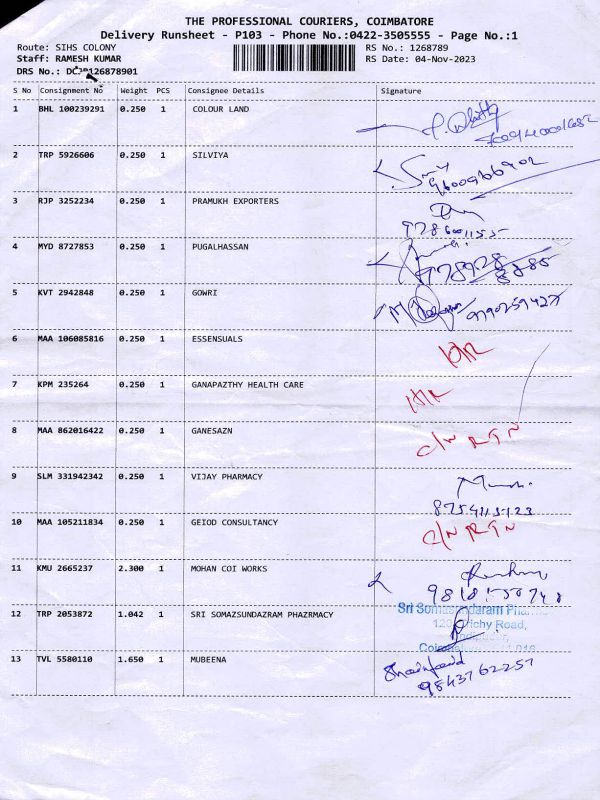 THE PROFESSIONAL COURIERS, COIMBATORE
Delivery Runsheet - P103 - Phone No.:0422-3505555 - Page No.:1
Route: SIHS COLONY
RS No.: 1268789
Staff: RAMESH KUMAR
RS Date: 04-Nov-2023
DRS No.: 126878901
S No Consignment No Weight PCS Consignee Details Signature
1 BHL 100239291 0.250 1 COLOUR LAND
2 TRP 5926606 0.250 1 SILVIYA
9600966902
3 RJP 3252234 0.250 1 PRAMUKH EXPORTERS
4 MYD 8727853 0.250 1 PUGALHASSAN
5 KVT 2942848 0.250 1 GOWRI
6 MAA 106085816 0.250 1 ESSENSUALS
7 KPM 235264 0.250 1 GANAPAZTHY HEALTH CARE
8 MAA 862016422 0.250 1 GANESAZN
C/N RTN
9 SLM 331942342 0.250 1 VIJAY PHARMACY
10 MAA 105211834 0.250 1 GEIOD CONSULTANCY
C/N RTN
11 KMU 2665237 2.300 1 MOHAN COI WORKS
12 TRP 2053872 1.042 1 SRI SOMAZSUNDAZRAM PHAZRMACY
Sri Somasundaram
Road,
13 TVL 5580110 1.650 1 MUBEENA
9843762257